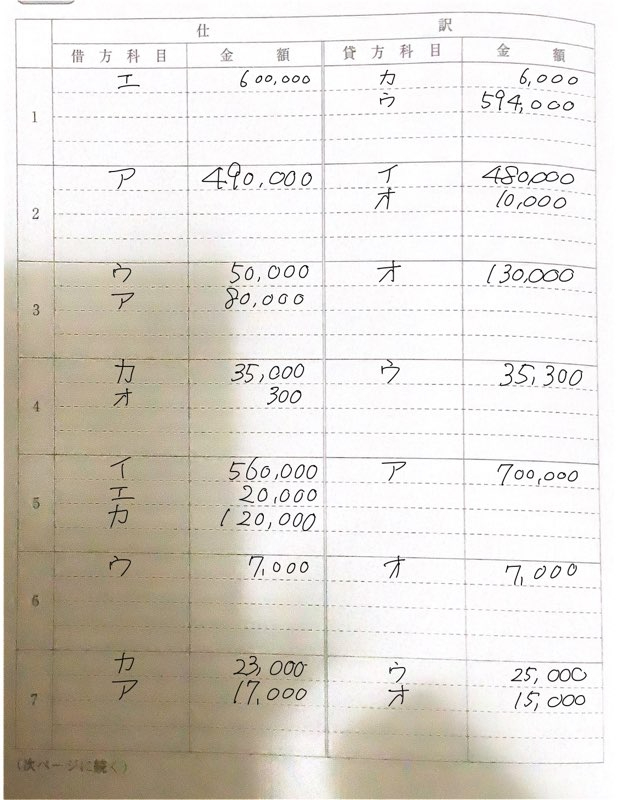 仕 訳
借方科目 金額 貸方科目 金額
1
エ 600,000 カ 6,000
ウ 594,000
2
ア 490,000 イ 480,000
オ 10,000
3
ウ 50,000 オ 130,000
ア 80,000
4
カ 35,000 ウ 35,300
オ 300
5
イ 560,000 ア 700,000
エ 20,000
カ 120,000
6
ウ 7,000 オ 7,000
7
カ 23,000 ウ 25,000
ア 17,000 オ 15,000
(次ページに続く)